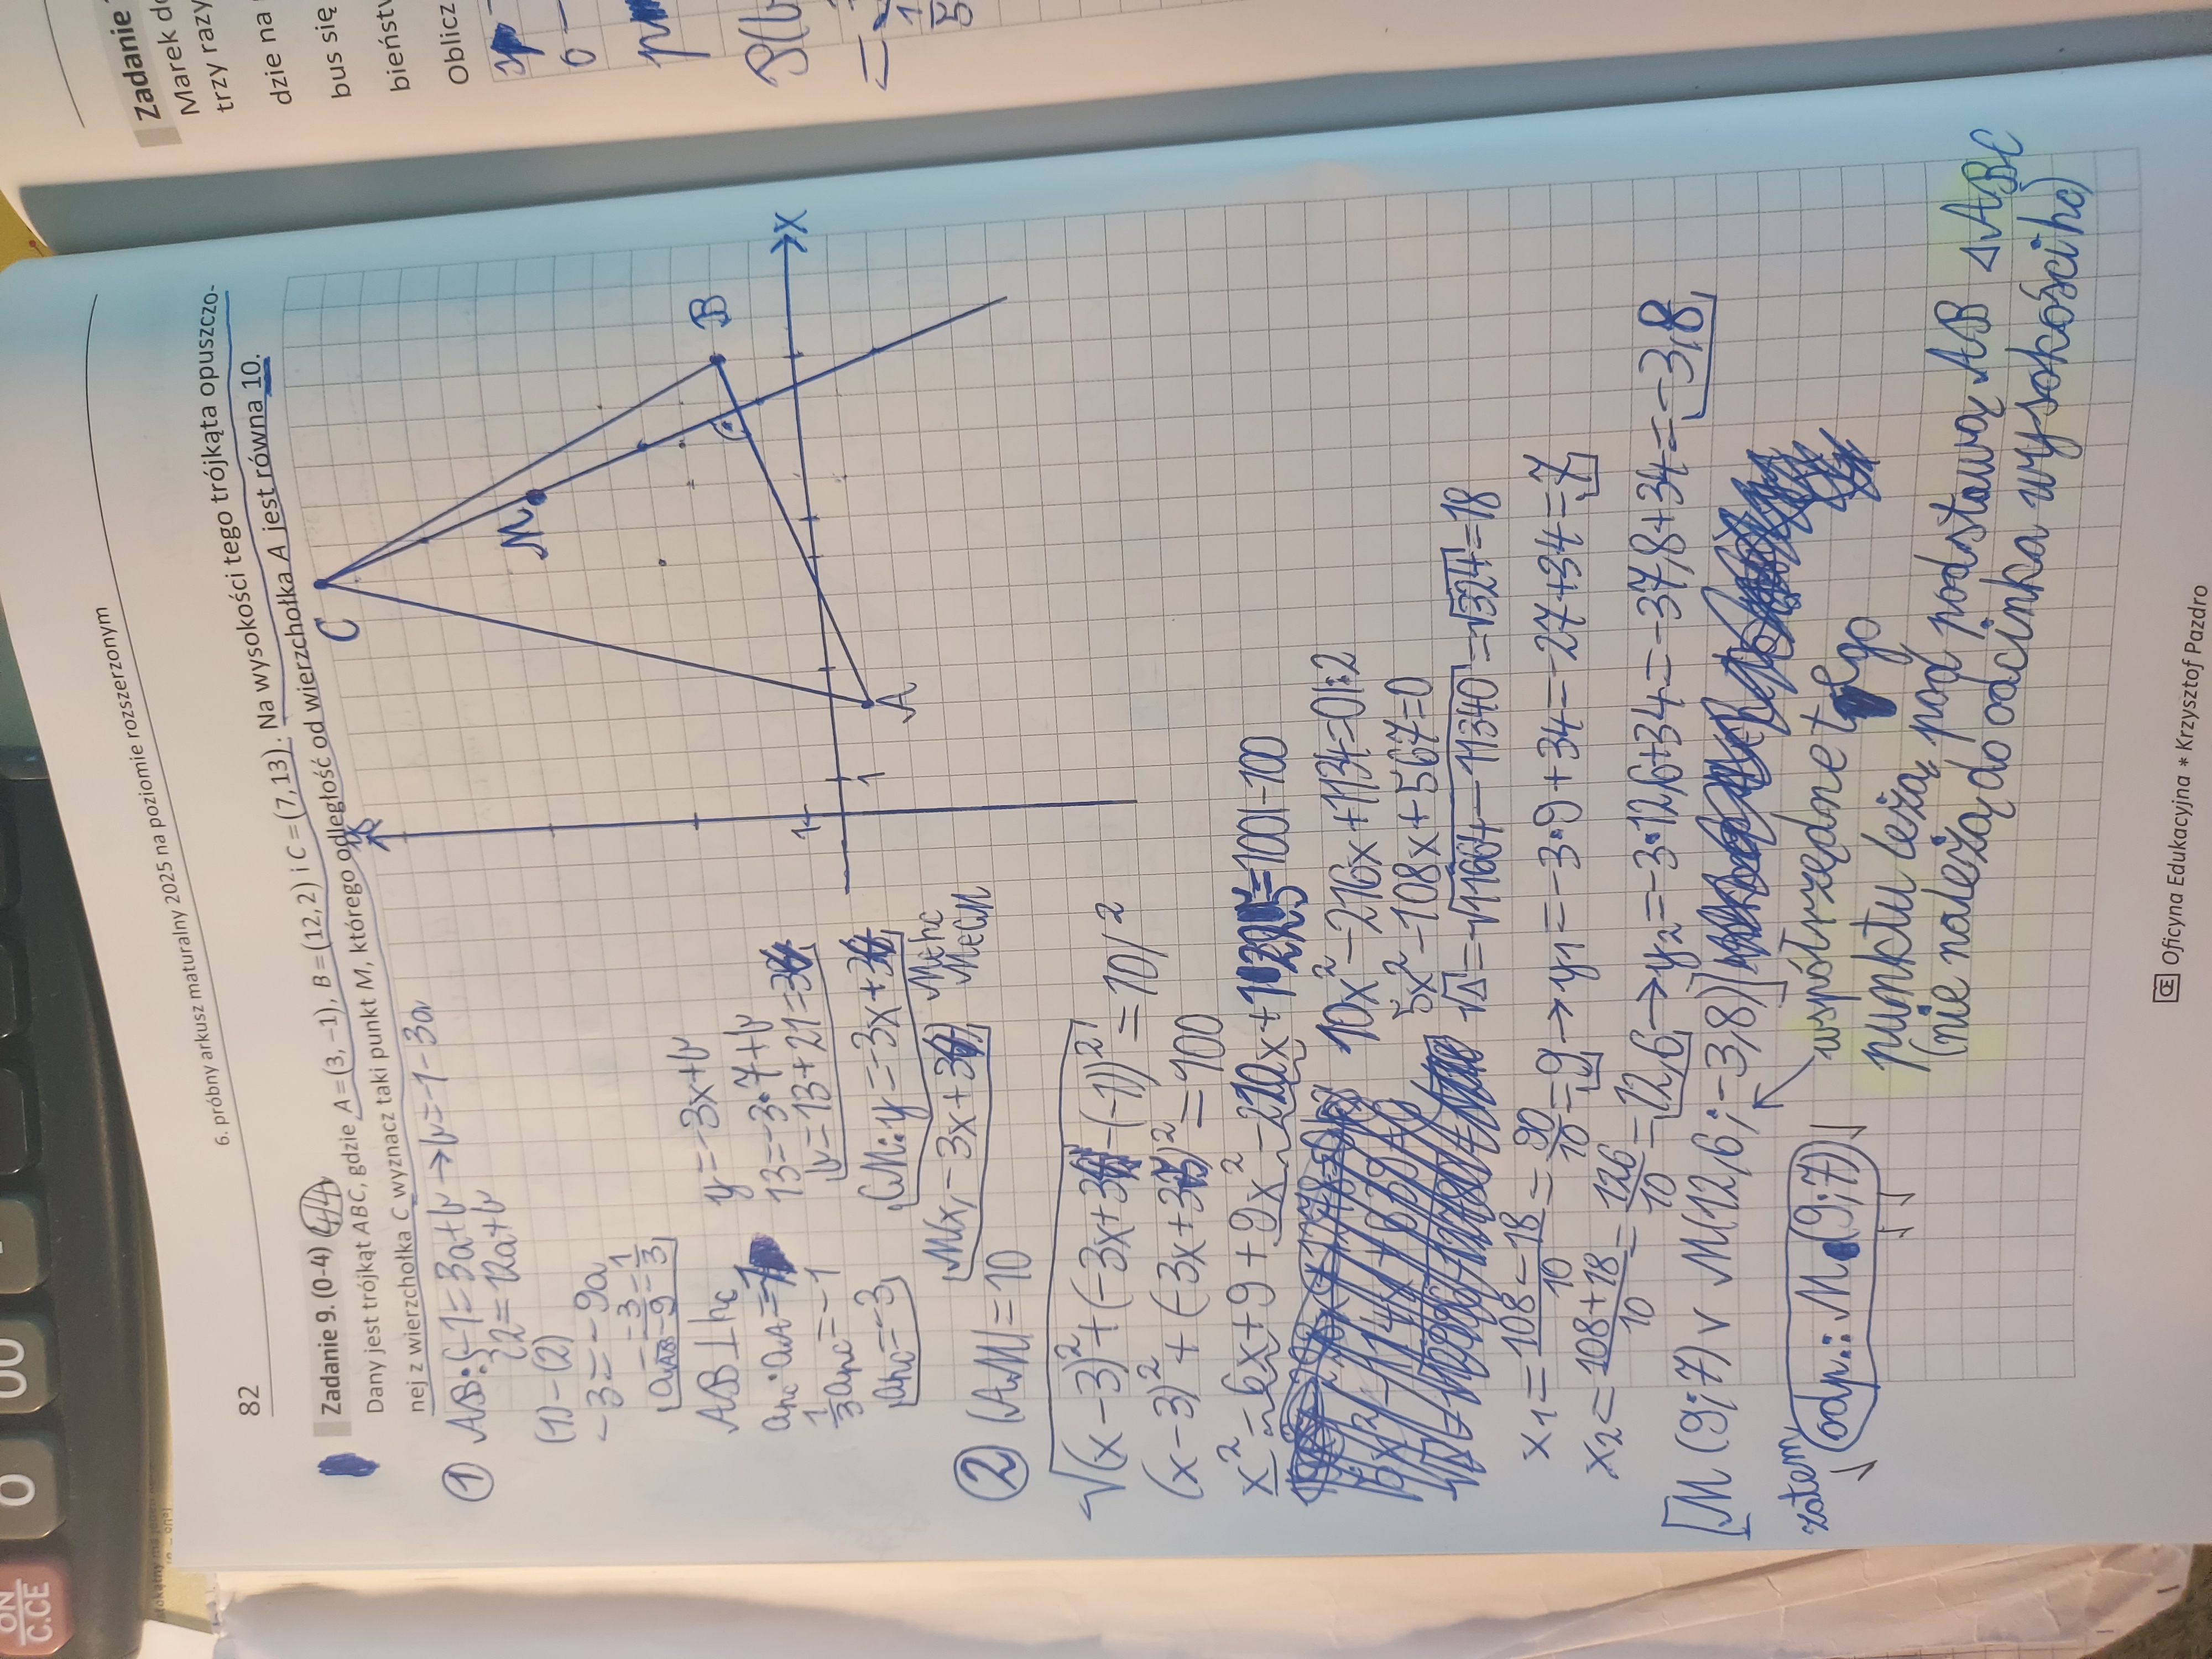 82
6. próbny arkusz maturalny 2025 na poziomie rozszerzonym
Zadanie 9. (0-4) 4/4
Dany jest trójkąt ABC, gdzie A = (3, −1), B = (12, 2) i C = (7, 13). Na wysokości tego trójkąta opuszczo-
nej z wierzchołka C wyznacz taki punkt M, którego odległość od wierzchołka A jest równa 10.
① AB: { -1=3a+b → b=-1-3a
2=12a+b
(1)-(2)
-3=-9a
a_AB = -3/-9 = 1/3
AB ⊥ hc
a_hc · a_AB = -1
1/3 a_hc = -1
a_hc = -3
y=-3x+b
13=-3·7+b
b=13+21=34
CM: y=-3x+34
M(x, -3x+34) M∈hc
M∈CM
C
M
B
A
X
1
1
② |AM|=10
√(x-3)²+(-3x+34-(-1))² = 10 /²
(x-3)²+(-3x+35)²=100
x²-6x+9+9x²-210x+1225=100 |-100
10x²-216x+1134=0 |:2
5x²-108x+567=0
√Δ=√11664-11340=√324=18
x₁= 108-18/10 = 90/10 = 9 → y₁=-3·9+34=-27+34=7
x₂= 108+18/10 = 126/10 = 12,6 → y₂=-3·12,6+34=-37,8+34=-3,8
M(9;7) v M(12,6;-3,8)
współrzędne tego
punktu leżą pod podstawą AB ΔABC
(nie należą do odcinka wysokości hc)
zatem,
odp.: M(9;7)
Œ Oficyna Edukacyjna * Krzysztof Pazdro
Zadanie
Marek do
trzy razy
dzie na
bus się
bieńst
Oblicz
ON
C.CE
0
00